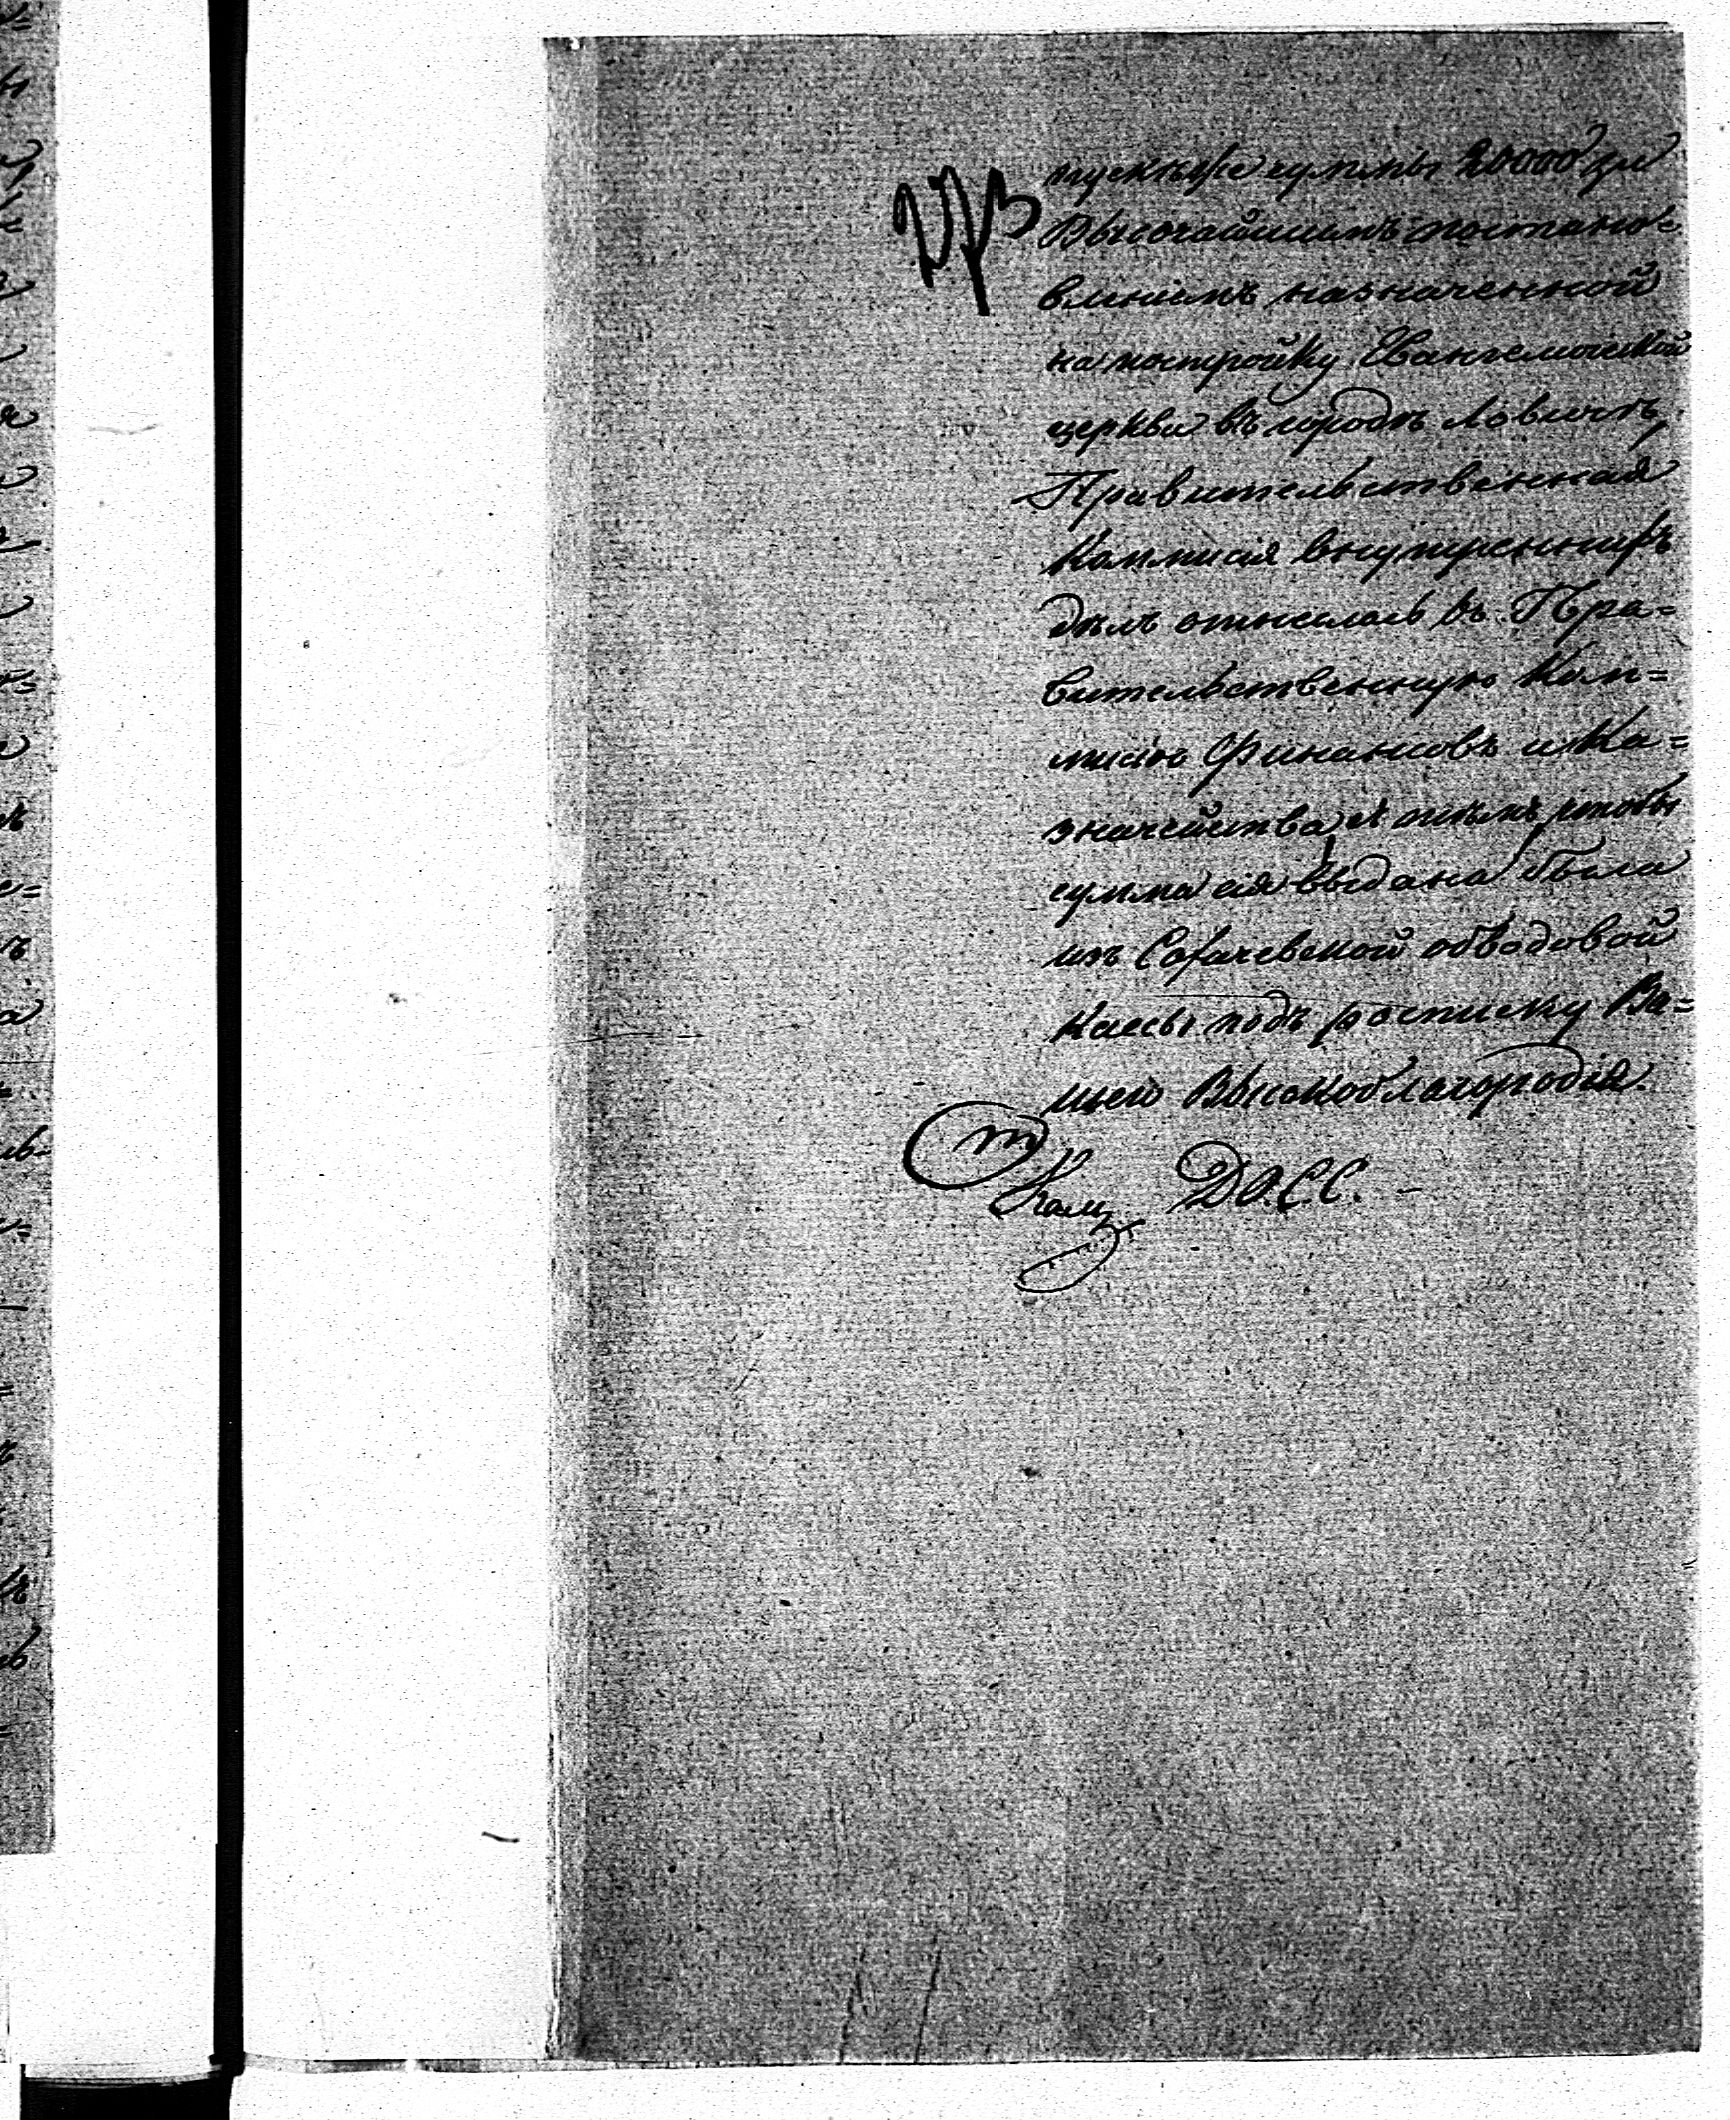 пускъ же суммы 20000 зл
Высочайшимъ постано=
вленіемъ назначенной
на постройку Евангелической
церкви въ городѣ Ловичѣ,
Правительственная
Коммисія внутреннихъ
дѣлъ отнеслась въ Пра=
вительственную Ком=
мисію Финансовъ и Ка=
значейства, съ тѣмъ чтобы
сумма сія выдана была
изъ Сохачевской обводовой
Кассы подъ росписку Ва=
шего Высокоблагородія.
Д.С.С.